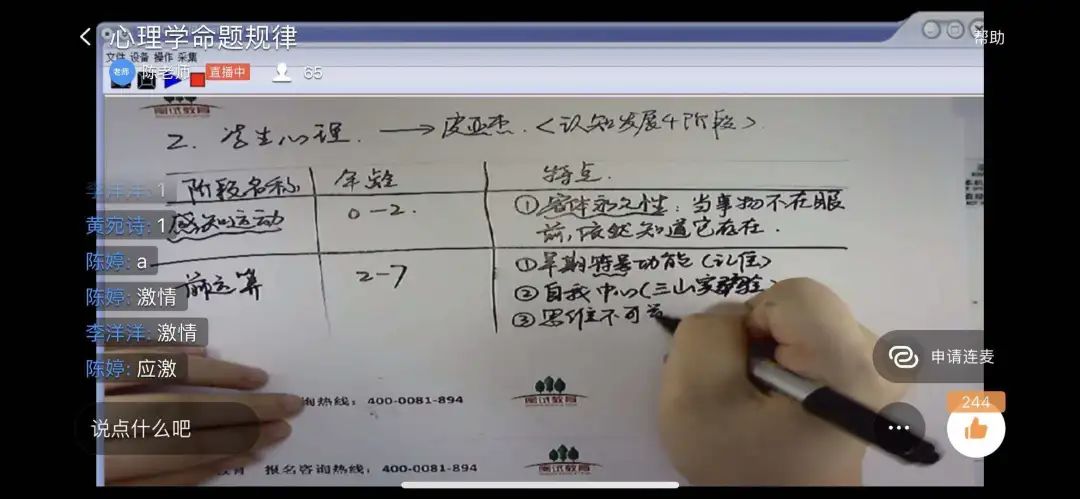 心理学命题规律
帮助
文件 设备 操作 采集
老师 陈老师 直播中 65
2. 学生心理. → 皮亚杰.<认知发展4阶段>.
阶段名称 年龄 特点.
感知运动 0-2. ①客体永久性:当事物不在眼
前,依然知道它存在.
前运算 2-7 ①早期符号功能(记住)
②自我中心(三山实验)
③思维不可逆
李洋洋: 1
黄宛诗: 1
陈婷: a
陈婷: 激情
李洋洋: 激情
陈婷: 应激
说点什么吧
申请连麦
244
询热线: 400-0081-894
报名咨询热线: 400-0081-894